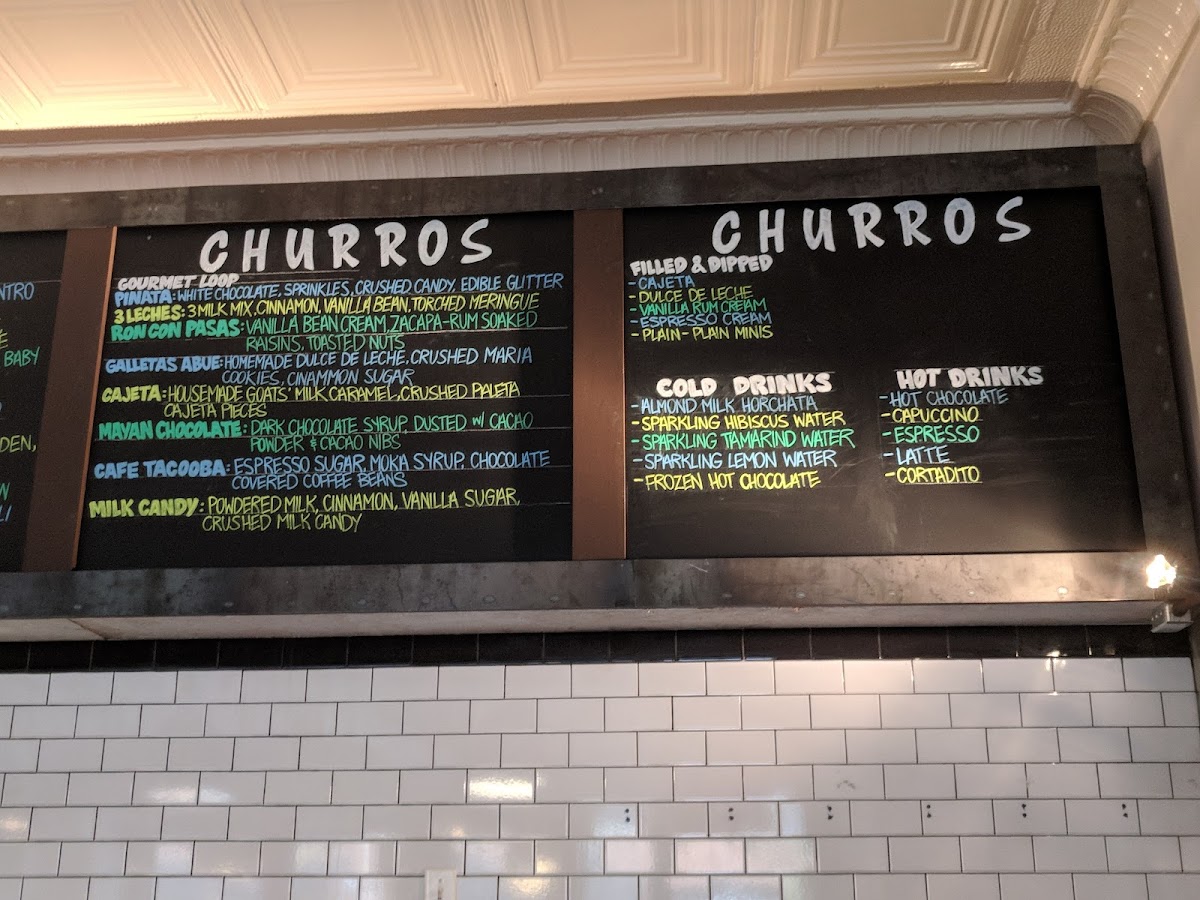 NTRO
BABY
DEN,
CHURROS
GOURMET LOOP
PINATA: WHITE CHOCOLATE, SPRINKLES, CRUSHED CANDY, EDIBLE GLITTER
3 LECHES: 3 MILK MIX, CINNAMON, VANILLA BEAN, TORCHED MERINGUE
RON CON PASAS: VANILLA BEAN CREAM, ZACAPA-RUM SOAKED
RAISINS, TOASTED NUTS
GALLETAS ABUE: HOMEMADE DULCE DE LECHE, CRUSHED MARIA
COOKIES, CINAMMON SUGAR
CAJETA: HOUSEMADE GOATS' MILK CARAMEL, CRUSHED PALETA
CAJETA PIECES
MAYAN CHOCOLATE: DARK CHOCOLATE SYRUP, DUSTED W/ CACAO
POWDER & CACAO NIBS
CAFE TACOOBA: ESPRESSO SUGAR, MOKA SYRUP, CHOCOLATE
COVERED COFFEE BEANS
MILK CANDY: POWDERED MILK, CINNAMON, VANILLA SUGAR,
CRUSHED MILK CANDY
CHURROS
FILLED & DIPPED
- CAJETA
- DULCE DE LECHE
- VANILLA RUM CREAM
- ESPRESSO CREAM
- PLAIN - PLAIN MINIS
COLD DRINKS
- ALMOND MILK HORCHATA
- SPARKLING HIBISCUS WATER
- SPARKLING TAMARIND WATER
- SPARKLING LEMON WATER
- FROZEN HOT CHOCOLATE
HOT DRINKS
- HOT CHOCOLATE
- CAPUCCINO
- ESPRESSO
- LATTE
- CORTADITO